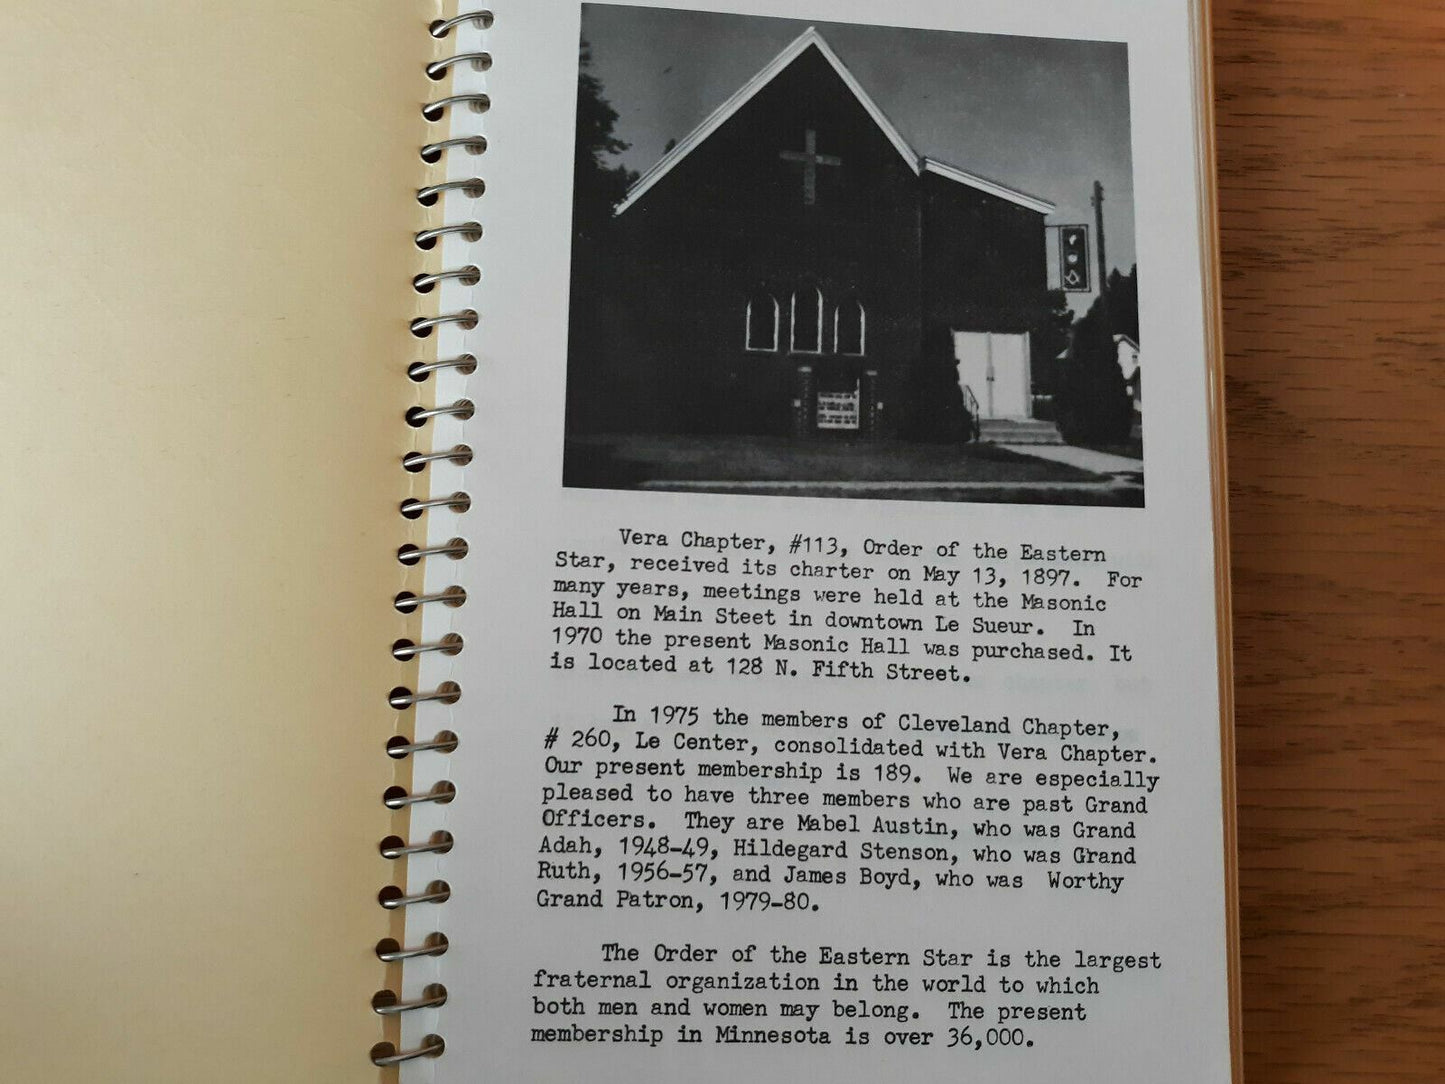 Vera Chapter, #113, Order of the Eastern
Star, received its charter on May 13, 1897. For
many years, meetings were held at the Masonic
Hall on Main Steet in downtown Le Sueur. In
1970 the present Masonic Hall was purchased. It
is located at 128 N. Fifth Street.
In 1975 the members of Cleveland Chapter,
# 260, Le Center, consolidated with Vera Chapter.
Our present membership is 189. We are especially
pleased to have three members who are past Grand
Officers. They are Mabel Austin, who was Grand
Adah, 1948-49, Hildegard Stenson, who was Grand
Ruth, 1956-57, and James Boyd, who was Worthy
Grand Patron, 1979-80.
The Order of the Eastern Star is the largest
fraternal organization in the world to which
both men and women may belong. The present
membership in Minnesota is over 36,000.